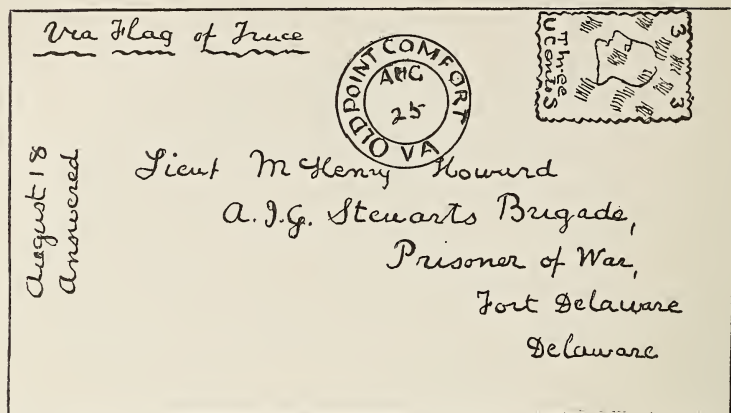 Via Flag of Truce
OLD POINT COMFORT
AUG
25
VA
3 3
Three
U Cents S
3
August 18
Answered
Lieut McHenry Howard
A.I.G. Steuarts Brigade,
Prisoner of War,
Fort Delaware
Delaware